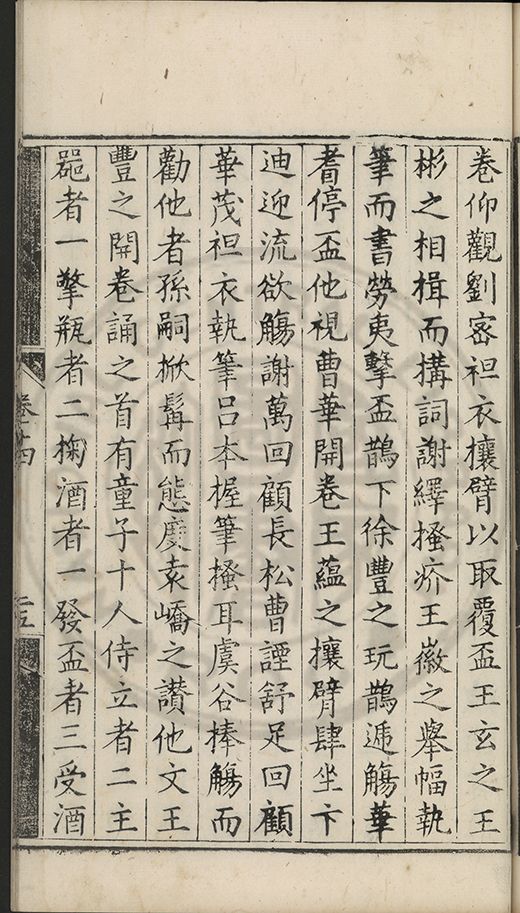 卷仰觀劉密袒衣攘臂以取覆盃王玄之王
彬之相揖而搆詞謝繹搔疥王徽之舉幅執
筆而書勞夷擎盃鵲下徐豐之玩鵲遞觴華
耆停盃他視曹華開卷王蘊之攘臂肆坐卞
迪迎流欲觴謝萬回顧長松曹諲舒足回顧
華茂袒衣執筆呂本握筆搔耳虞谷捧觴而
勸他者孫嗣掀髯而態度袁嶠之讃他文王
豐之開卷誦之首有童子十人侍立者二主
噐者一擎瓶者二掬酒者一發盃者三受酒
卷十四
二五